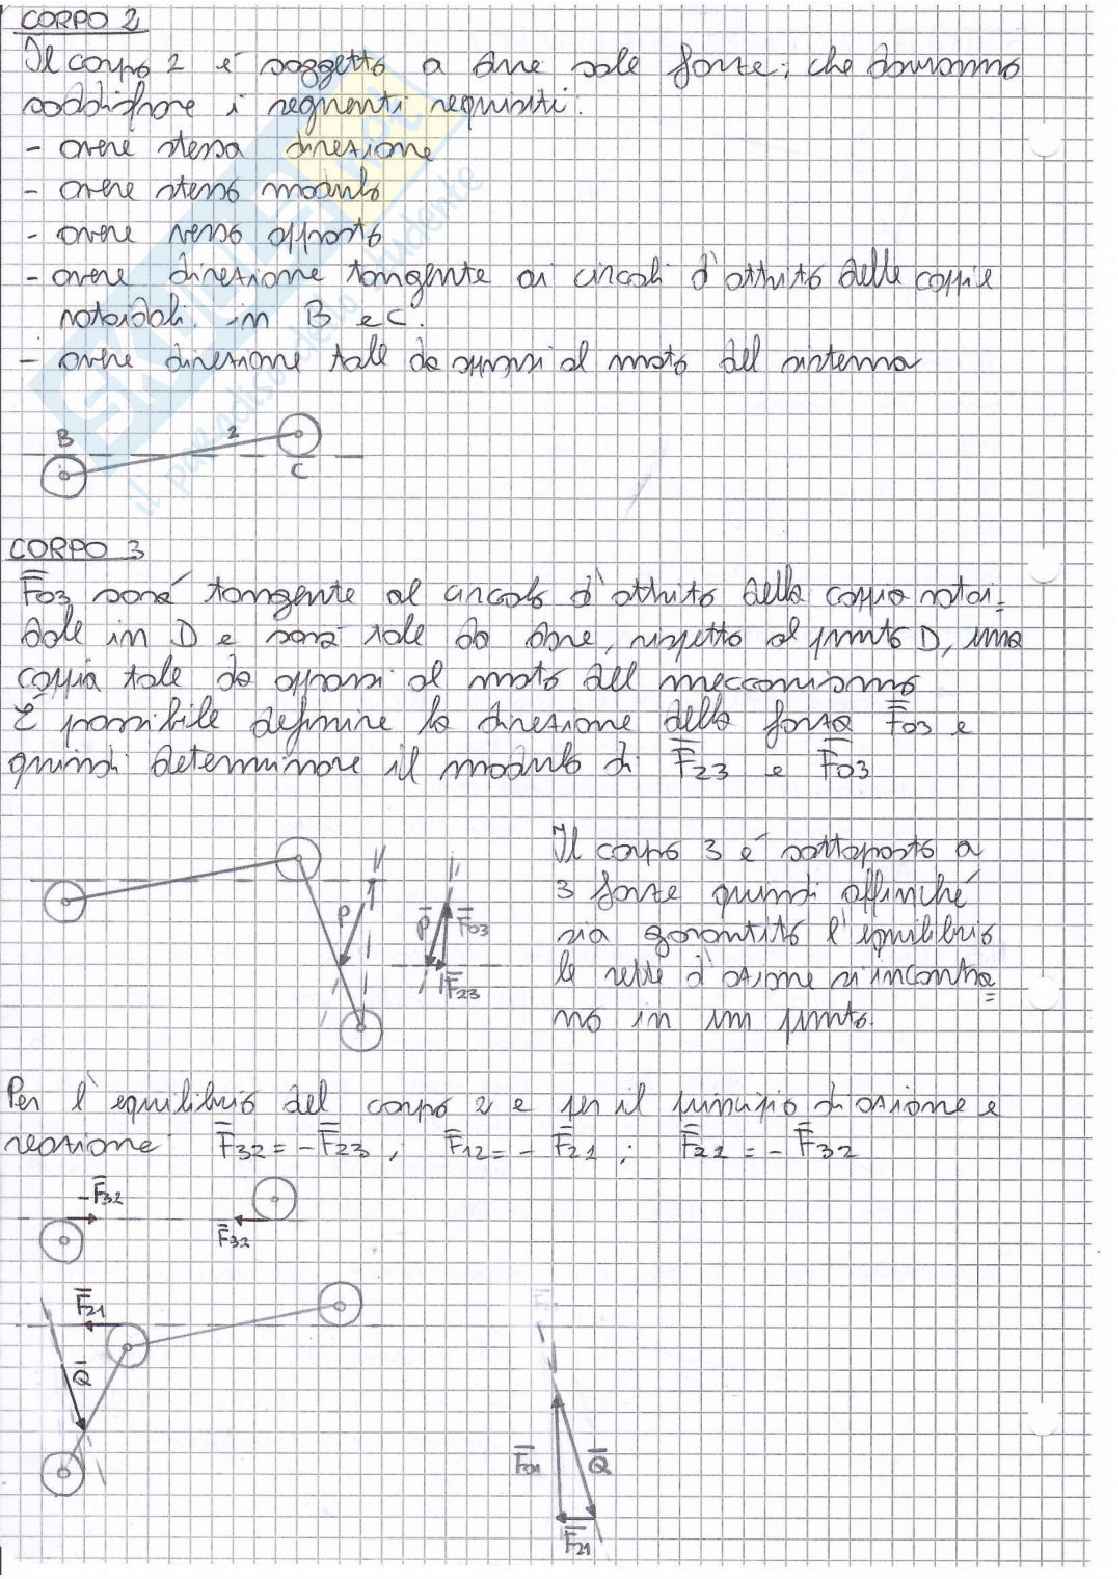 CORPO 2
Il corpo 2 è soggetto a due sole forze, che dovranno
soddisfare i seguenti requisiti:
- avere stessa direzione
- avere stesso modulo
- avere verso opposto
- avere direzione tangente ai circoli d'attrito delle coppie
rotoidali in B e C.
- avere direzione tale da opporsi al moto del sistema
B 2 C
CORPO 3
F̄03 sarà tangente al circolo d'attrito della coppia rotoi=
dale in D e sarà tale da dare, rispetto al punto D, una
coppia tale da opporsi al moto del meccanismo
È possibile definire la direzione della forza F̄03 e
quindi determinare il modulo di F̄23 e F̄03
Il corpo 3 è sottoposto a
3 forze quindi affinché
sia garantito l'equilibrio
le rette d'azione si incontra=
no in un punto.
P P̄ F̄03
F̄23
Per l'equilibrio del corpo 2 e per il principio di azione e
reazione F̄32 = - F̄23 , F̄12 = - F̄21 ; F̄21 = - F̄32
-F̄32
F̄32
F̄21
Q̄
Q̄
F̄21
SKUOLA.net
il paradiso dello studente